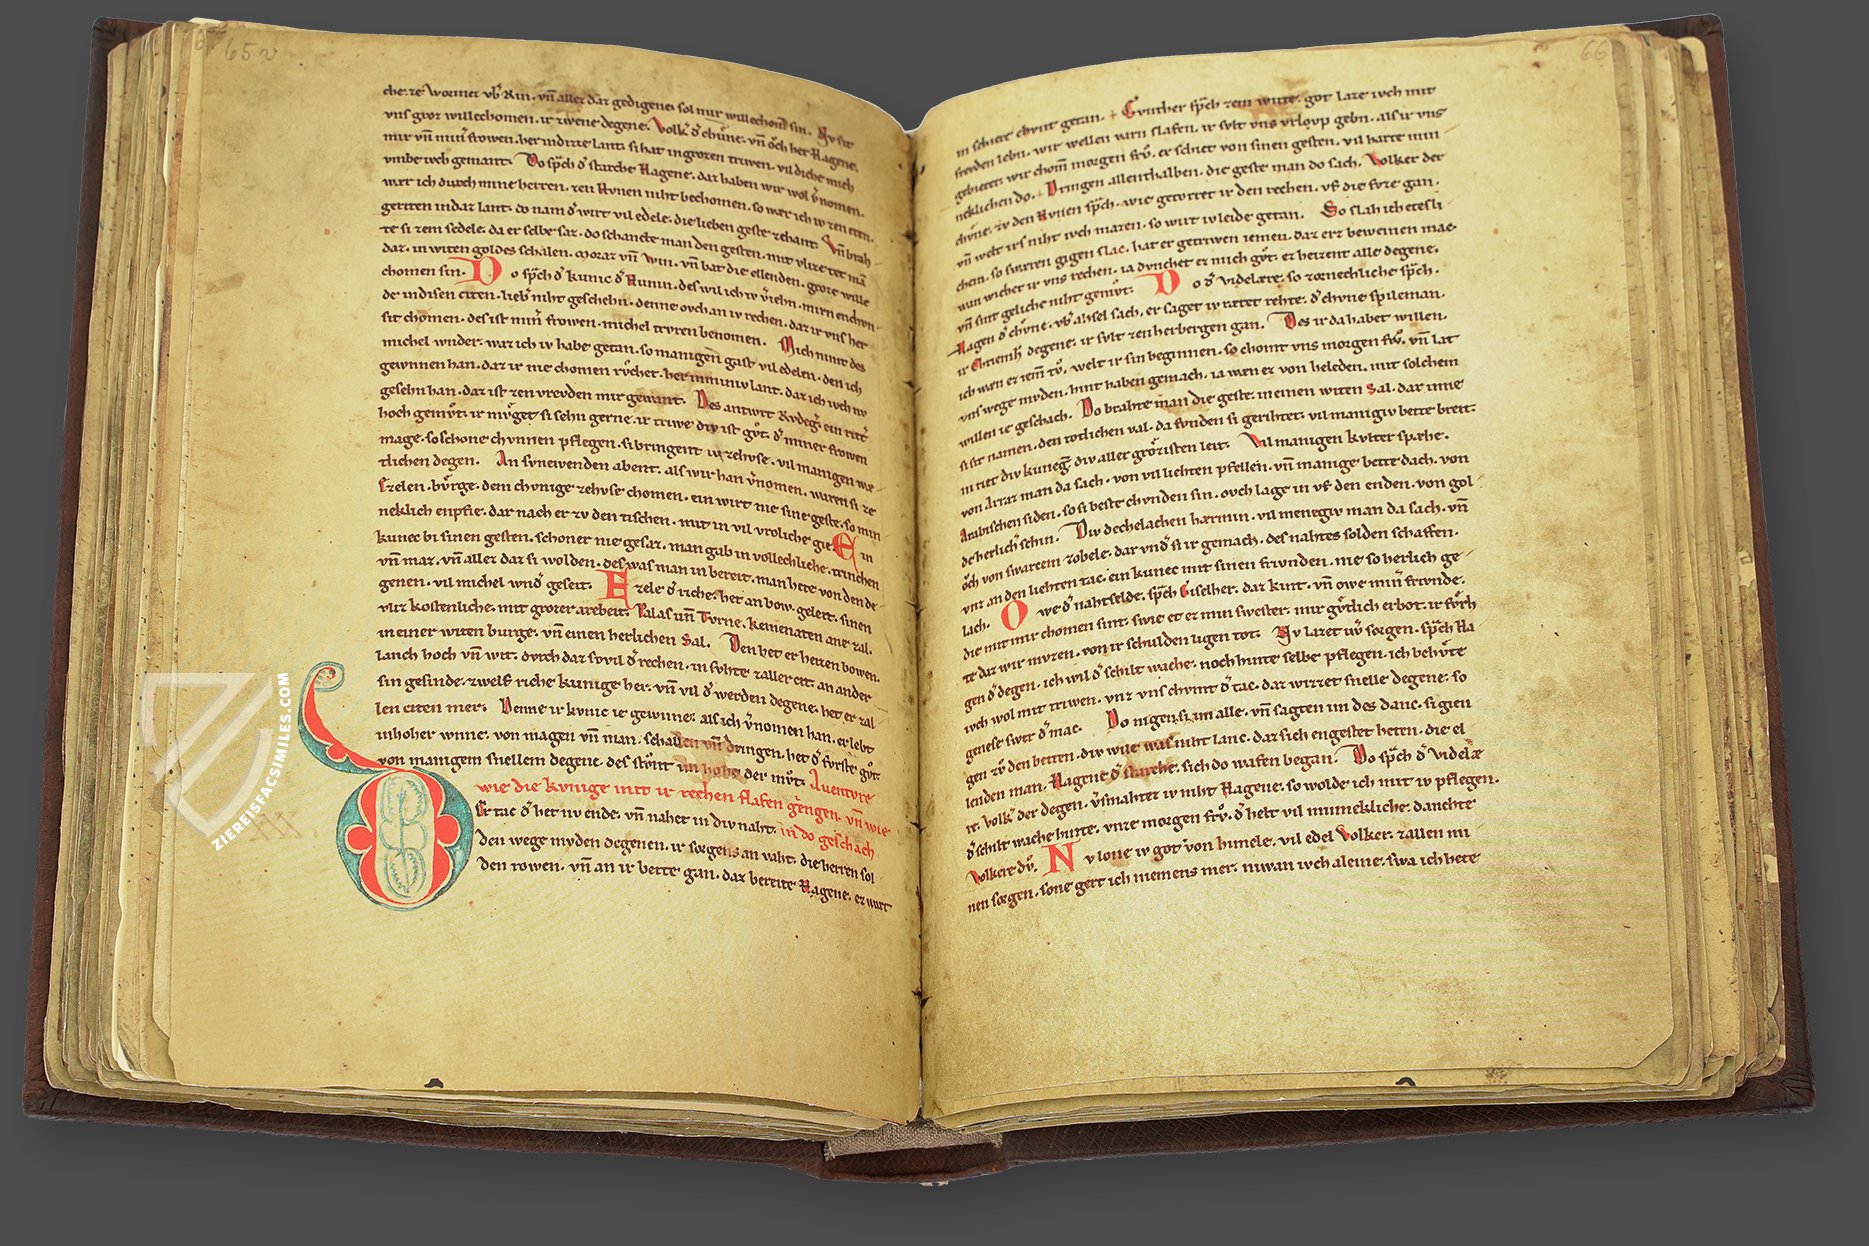 65v
che. ze Wormez vb̾ Rin. vn̄ allez daz gedigene. sol mir willechom̄ sin. Nv sit
vns groz willechomen. ir zwene degene. Volk̾ d̾ chv̊ne. vn̄ ǒch her Hagene.
mir vn̄ min̾ frowen. her indizze lant. si hat in grozen triwen. vil diche mich
vmbe ivch gemant. Do sp̄ch d̾ starche Hagene. daz haben wir wol v̾nomen.
wær ich dvrch mine herren. zen Hvnen niht bechomen. so wær ich iv zen eren.
geriten in daz lant. do nam d̾ wirt vil edele. die lieben geste zehant. Vn̄ brah-
te si zem sedele. da er selbe saz. do schancte man den gesten. mit vlize tet mā
daz. in witen goldes schalen. moraz vn̄ win. vn̄ bat die ellenden. groze wille
chomen sin. Do sp̄ch d̾ kunic d̾ Hunin. des wil ich iv v̾iehn. mirn endvn-
de in disen citen. lieb̾ niht geschehn. denne ovch an iv rechen. daz ir vns her
sit chomen. des ist min̾ frowen. michel trvren benomen. Mich nimt des
michel wnder. waz ich iv habe getan. so manigen gast vil edelen. den ich
gewnnen han. daz ir nie chomen rv̊chet. her in minw lant. daz ich ivch nv
gesehn han. daz ist zen vrevden mir gewant. Des antwrt Rvdeg̾. ein ritt̾
hoch gemv̊t. ir mv̊get si sehn gerne. ir triwe div ist gv̊t. d̾ miner frowen
mage. so schone chvnnen pflegen. si bringent iv zehvse. vil manigen wæ-
tlichen degen. An svnewenden abent. als wir han v̾nomen. waren si ze
Ezelen. bv̊rge. dem chvnige zehvse chomen. ein wirt nie sine geste. so min
neklich enpfie. dar nach er zv den tischen. mit in vil vroliche gie. Ein
kunec bi sinen gesten. schoner nie gesaz. man gab in vollechliche. trinchen
vn̄ maz. vn̄ allez daz si wolden. des was man in bereit. man hete von den de-
genen. vil michel wnd̾ geseit. Ezele d̾ riche. het an bow. geleit. sinen
vliz kostenliche. mit grozer arebeit. Palas vn̄ Tvrne. kemenaten ane zal.
in einer witen burge. vn̄ einen herlichen Sal. Den het er heizen bowen.
lanch hoch vn̄ wit. dvrch daz so vil d̾ rechen. in svhte zaller cit. an ander
sin gesinde. zwelf riche kunige her. vn̄ vil d̾ werden degene. het er zal-
len citen mer. Denne ir kvnic ie gewnne. als ich v̾nomen han. er lebt
in hoher wnne. von magen vn̄ man. schallen vn̄ dringen. het d̾ fv̊rste gv̊t.
von manigem snellem degene. des stv̊nt im hohe der mv̊t. Aventvre
wie die kvnige mit ir rechen slafen g̾engen. vn̄ wie
Der tac d̾ het nv ende. vn̄ nahet in div naht. in do geschach
den wege mvden degenen. ir sorgen an vaht. die herren sol
den rowen. vn̄ an ir bette gan. daz bereite Hagene. ez wart
66
in schiere chvnt getan. Gvnther sp̄ch zem wirte. got laze ivch mit
frevden lebn. wir wellen varn slafen. ir svlt vns vrlovp gebn. als ir vns
gebietet. wir chom̄ morgen frv̊. er schiet von sinen gesten. vil harte min-
neklichen do. Dringen allenthalben. die geste man do sach. Volker der
chv̊ne. zv den Hvnen sp̄ch. wie getvrret ir den rechen. vf die fvze gan.
vn̄ welt irs niht ivch mazen. so wirt iv leide getan. So slah ich etesli-
chem. so swæren gigen slac. hat er getriwen iemen. daz erz beweinen mac.
wan wichet ir vns rechen. ia dvnchet er mich gv̊t. ez heizent alle degene.
vn̄ sint geliche niht gemv̊t. Do d̾ videlære. so zornechliche sp̄ch.
Hagen d̾ chv̊ne. vb̾ ahsel sach. er saget iv rætet rehte. d̾ chvne spileman.
ir Chriemh̾ degene. ir svlt zen herbergen gan. Des ir da habet willen.
ich wæn ez iem̄ tv̊. welt ir sin beginnen. so chomt vns morgen frv̊. vn̄ lat
vns wege mvden. hint haben gemach. ia wæn ez von heleden. mit solchem
willen ie geschach. Do brahte man die geste. in einen witen Sal. dar inne
si sit namen. den totlichen val. da fvnden si gerihtet. vil manigiv bette breit.
in riet div kuneg̾. div aller grǒzisten leit. Vil manigen kvlter spæhe.
von Arraz man da sach. von vil liehten pfellen. vn̄ manige bette dach. von
Arabischen siden. so si beste chvnden sin. ovch lage in vf den enden. von gol-
de herlich̾ schin. Div dechelachen hærmin. vil menegiv man da sach. vn̄
ǒch von swarcem zobele. dar vnd̾ si ir gemach. des nahtes solden schaffen.
vnz an den liehten tac. ein kunec mit sinen frivnden. nie so herlich ge-
lach. Owe d̾ nahtselde. sp̄ch Giselher. daz kint. vn̄ owe min̾ frivnde.
die mit mir chomen sint. swie et ez min swester. mir gv̊tlich erbot. ir fv̊rh
te daz wir mvzen. von ir schulden ligen tot. Nv lazet iw̾ sorgen. sp̄ch Ha
gen d̾ degen. ich wil d̾ schilt wache. noch hinte selbe pflegen. ich behv̊te
ivch wol mit triwen. vnz vns chvmt d̾ tac. daz wizzet snelle degene. so
genese swer d̾ mac. Do nigen si im alle. vn̄ sagten im des danc. si gien
gen zv̊ den betten. div wile was niht lanc. daz sich engestet heten. die el
lenden man. Hagene d̾ starche. sich do wafen began. Do sp̄ch d̾ videlæ
re. Volk̾ der degen. v̾smahtez iv niht Hagene. so wolde ich mit iv pflegen.
d̾ schilt wache hinte. vnze morgen frv̊. d̾ helt vil minnekliche. danchte
Volkere dv̊. Nv lone iv got von himele. vil edel Volker. zallen mi
nen sorgen. sone gert ich niemens mer. niwan ivch aleine. swa ich hete
ZIEREISFACSIMILES.COM